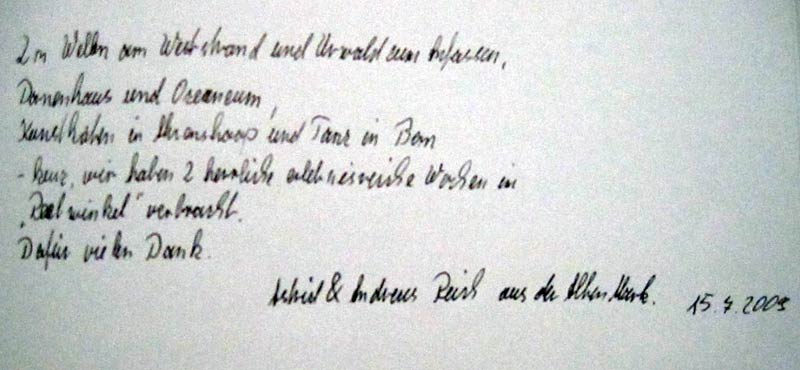 2m Wellen am Weststrand und Urwald zum Anfassen,
Darwineum und Ozeaneum,
Kunstkaten in Ahrenshoop und Tanz in Born
- kurz, wir haben 2 herrliche erlebnisreiche Wochen im
winkel" verbracht.
Dafür vielen Dank.
Astrid & Andreas Reich aus der Alten Mark. 15.7.2009